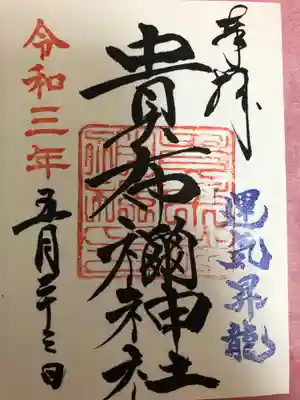 奉拝
運気昇龍
貴布禰神社
令和三年
五月二十三日